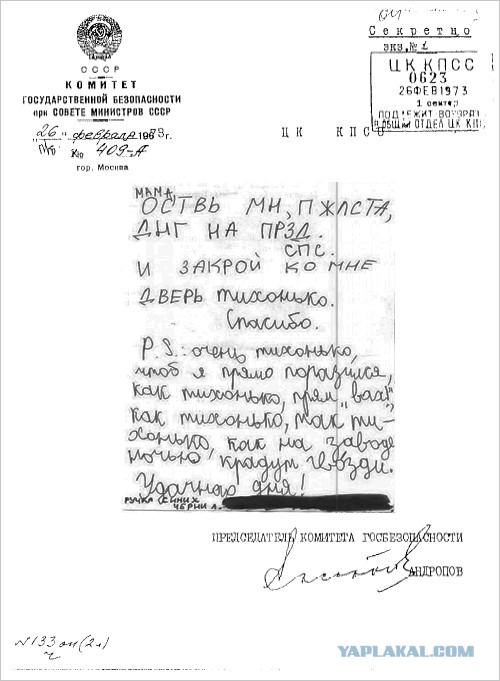 Секретно
экз. № 1
СССР
КОМИТЕТ
ГОСУДАРСТВЕННОЙ БЕЗОПАСНОСТИ
при СОВЕТЕ МИНИСТРОВ СССР
"26" февраля 1973г.
№ 409-А
гор. Москва
ЦК КПСС
0623
26ФЕВ1973
1 сектор
ПОДЛЕЖИТ ВОЗВРАТ
В ОБЩИЙ ОТДЕЛ ЦК КПС
ЦК КПСС
МАМА,
ОСТВЬ МН, ПЖЛСТА,
ДНГ НА ПРЗД.
СПС.
И ЗАКРОЙ КО МНЕ
ДВЕРЬ тихонько.
Спасибо.
P.S.: очень тихонько,
чтоб я прямо поразился,
как тихонько, прям „вах!",
как тихонько, так ти-
хонько, как на заводе
ночью крадут гвозди.
Удачного дня!
РУЧКА СИНИХ
ЧЕРНИЛ
ПРЕДСЕДАТЕЛЬ КОМИТЕТА ГОСБЕЗОПАСНОСТИ
АНДРОПОВ
YAPLAKAL.COM